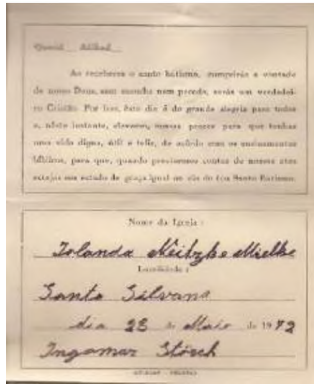 Ao receberes o santo batismo, cumpriste a vontade
de nosso Deus, sem mancha nem pecado, serás um verdadei-
ro Cristão. Por isso, êste dia é de grande alegria para todos
e, nêste instante, elevemos, nossas preces para que tenhas
uma vida digna, útil e feliz, de acôrdo com os ensinamentos
bíblicos, para que, quando prestarmos contas de nossos atos
estejas em estado de graça igual ao dia do teu Santo Batismo.
Nome da Igreja:
Iolanda Neitzke Mielke
Localidade:
Santo Silvana
dia 28 de Maio de 1972
Ingomar Störch